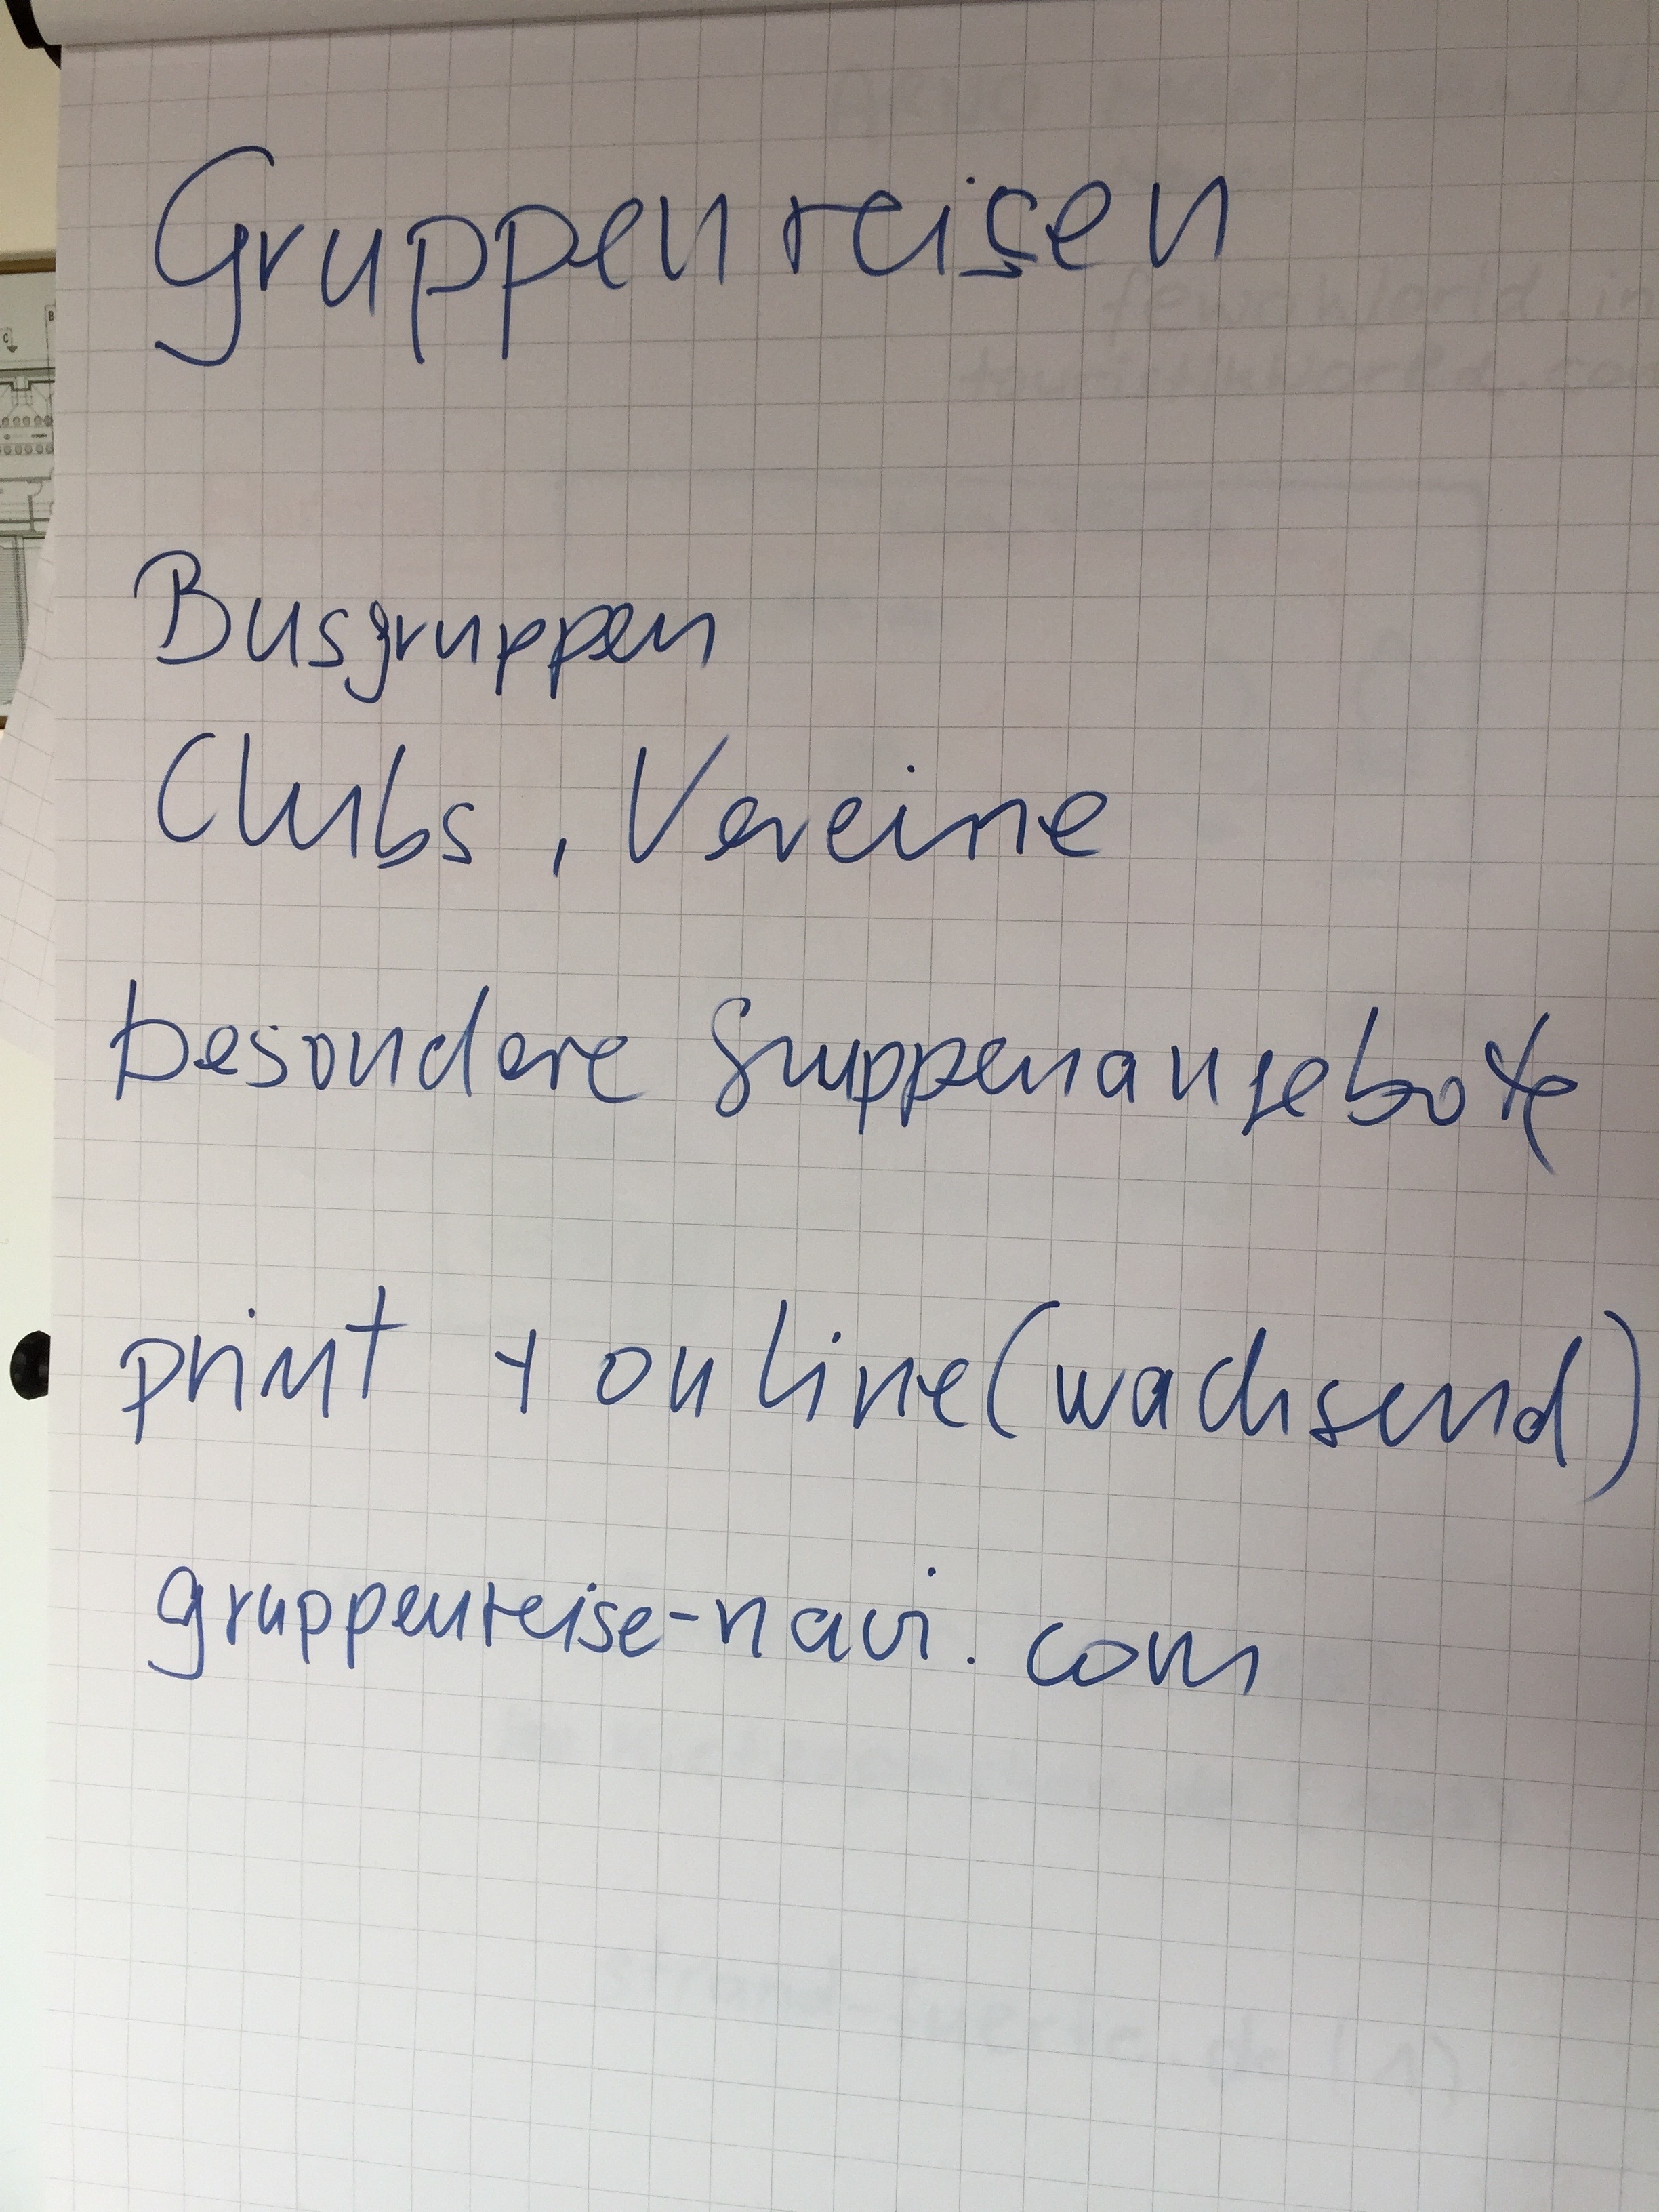 Gruppenreisen
Busgruppen
Clubs, Vereine
besondere Gruppenangebote
print + online (wachsend)
gruppenreise-navi.com